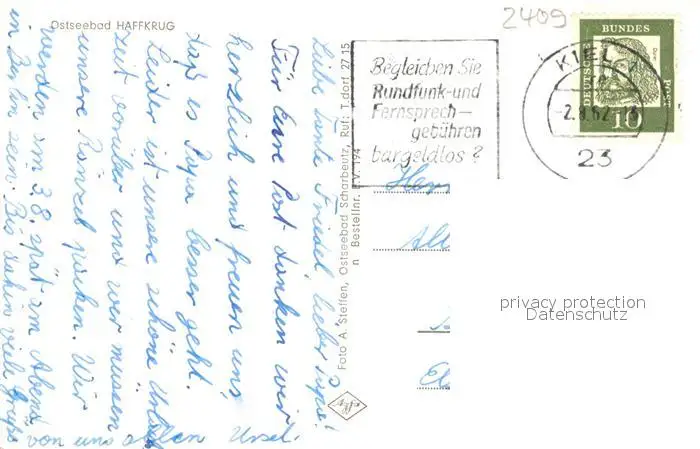 Ostseebad HAFFKRUG
2409
Liebe Tante Friedel, lieber Papa!
Für Eure Post danken wir
herzlich und freuen uns
daß es Papa besser geht.
Leider ist unsere schöne Urlaubs
zeit vorüber und wir müssen
unsere Ränzel packen. Wir
werden am 3.8. spät am Abend
in Berlin sein. Bis dahin viel Grüße
von uns allen Ursel.
Foto A. Steffen, Ostseebad Scharbeutz, Ruf: T.dorf 27 15
n Bestellnr. V. 194
Begleichen Sie
Rundfunk-und
Fernsprech-
gebühren
bargeldlos?
KIEL
-2.8.62
23
DEUTSCHE
BUNDES
POST
10
privacy protection
Datenschutz